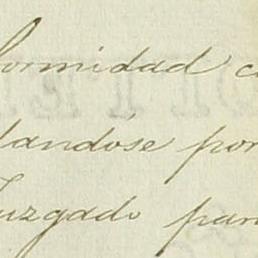 formidad c
landóse por
Juzgado par